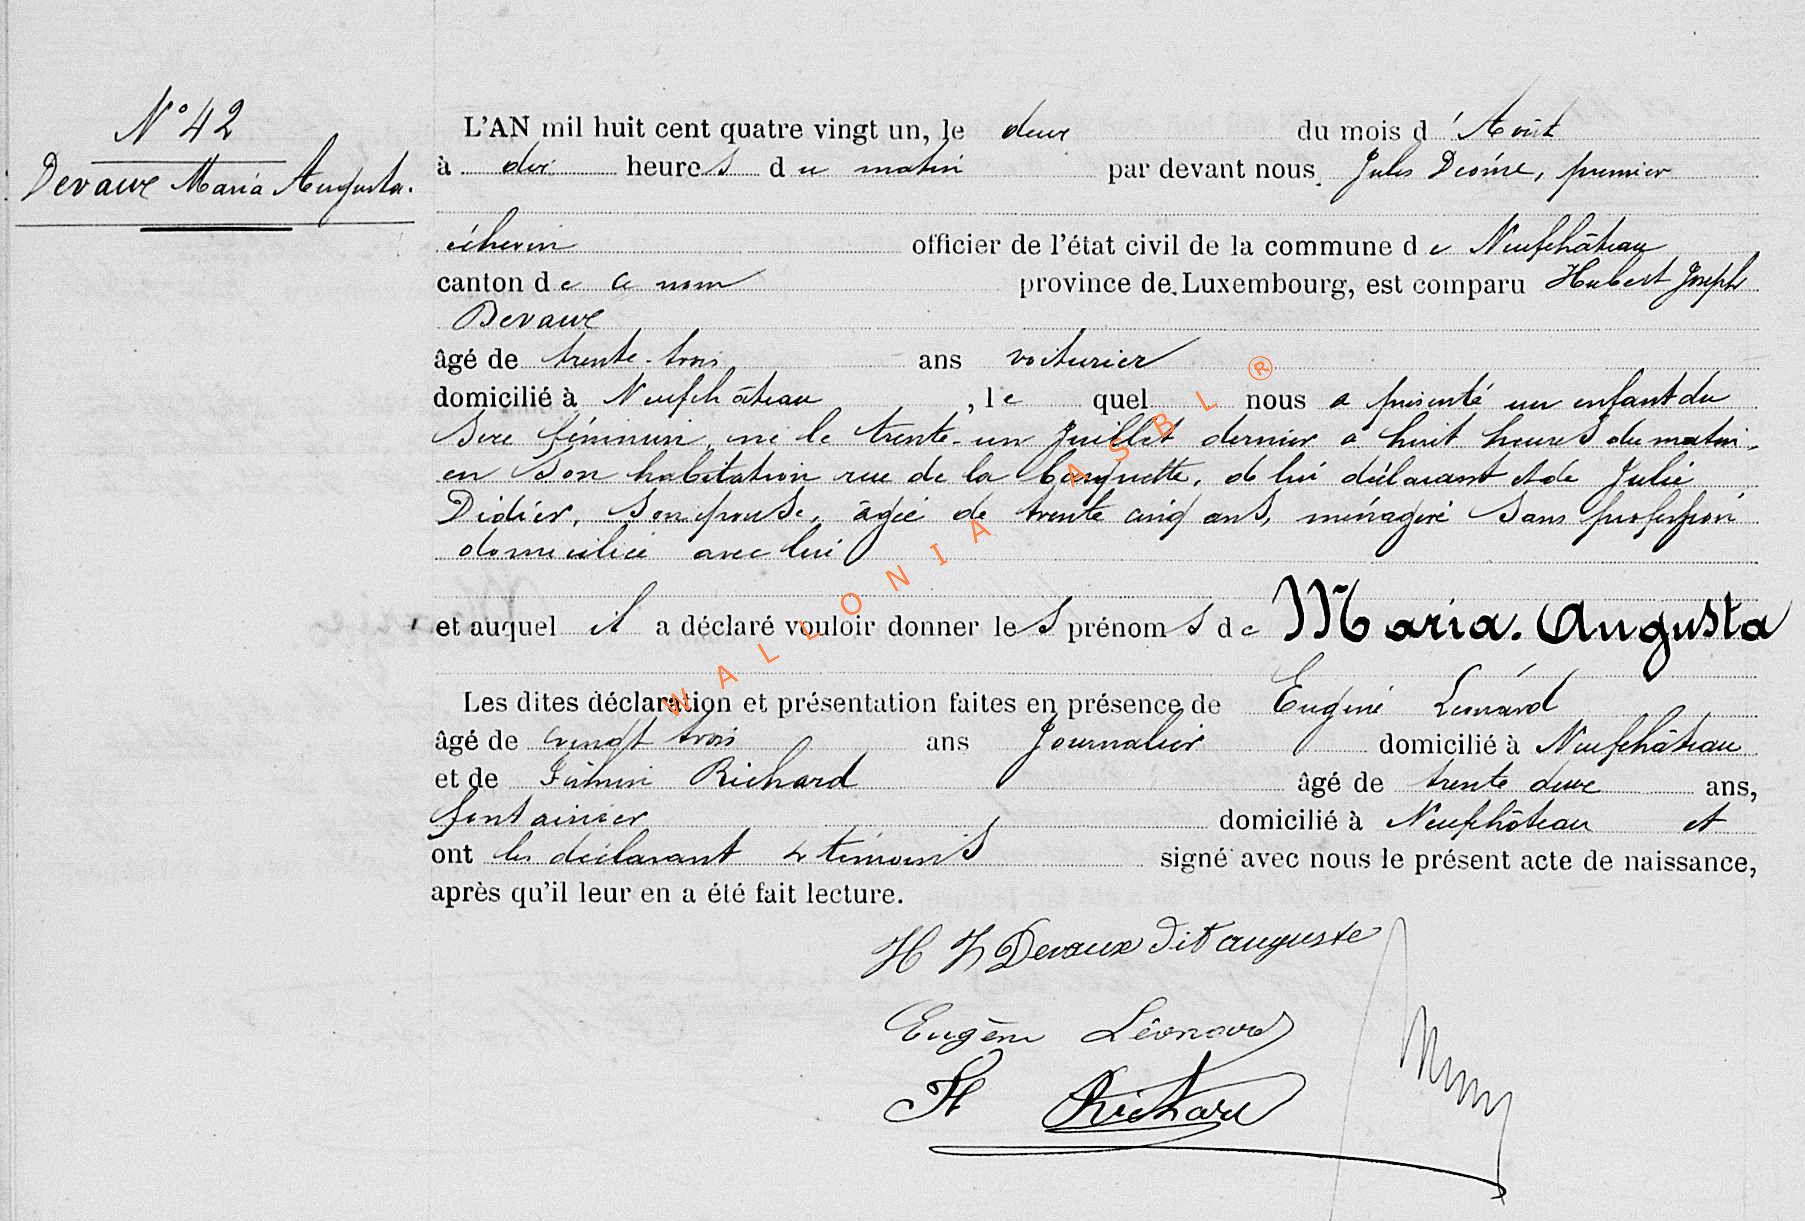 N° 42
Devaux Maria Augusta.
L'AN mil huit cent quatre vingt un, le deux du mois d'Août
à dix heures du matin par devant nous Jules premier
échevin officier de l'état civil de la commune de Neufchâteau
canton de ce nom province de Luxembourg, est comparu Hubert Joseph
Devaux
âgé de trente-trois ans voiturier
domicilié à Neufchâteau, lequel nous a présenté un enfant du
sexe féminin, né le trente-un Juillet dernier a huit heures du matin,
en son habitation rue de la de lui déclarant et de Julie
Didier, son épouse, âgée de trente cinq ans, ménagère sans profession
domiciliée avec lui
et auquel il a déclaré vouloir donner les prénoms de Maria. Augusta
Les dites déclaration et présentation faites en présence de Eugène Léonard
âgé de vingt trois ans Journalier domicilié à Neufchâteau
et de Firmin Richard âgé de trente deux ans,
fontainier domicilié à Neufchâteau et
ont les déclarant & témoins signé avec nous le présent acte de naissance,
après qu'il leur en a été fait lecture.
H J Devaux dit auguste
Eugène Léonard
Richard
WALLONIA ASBL ®